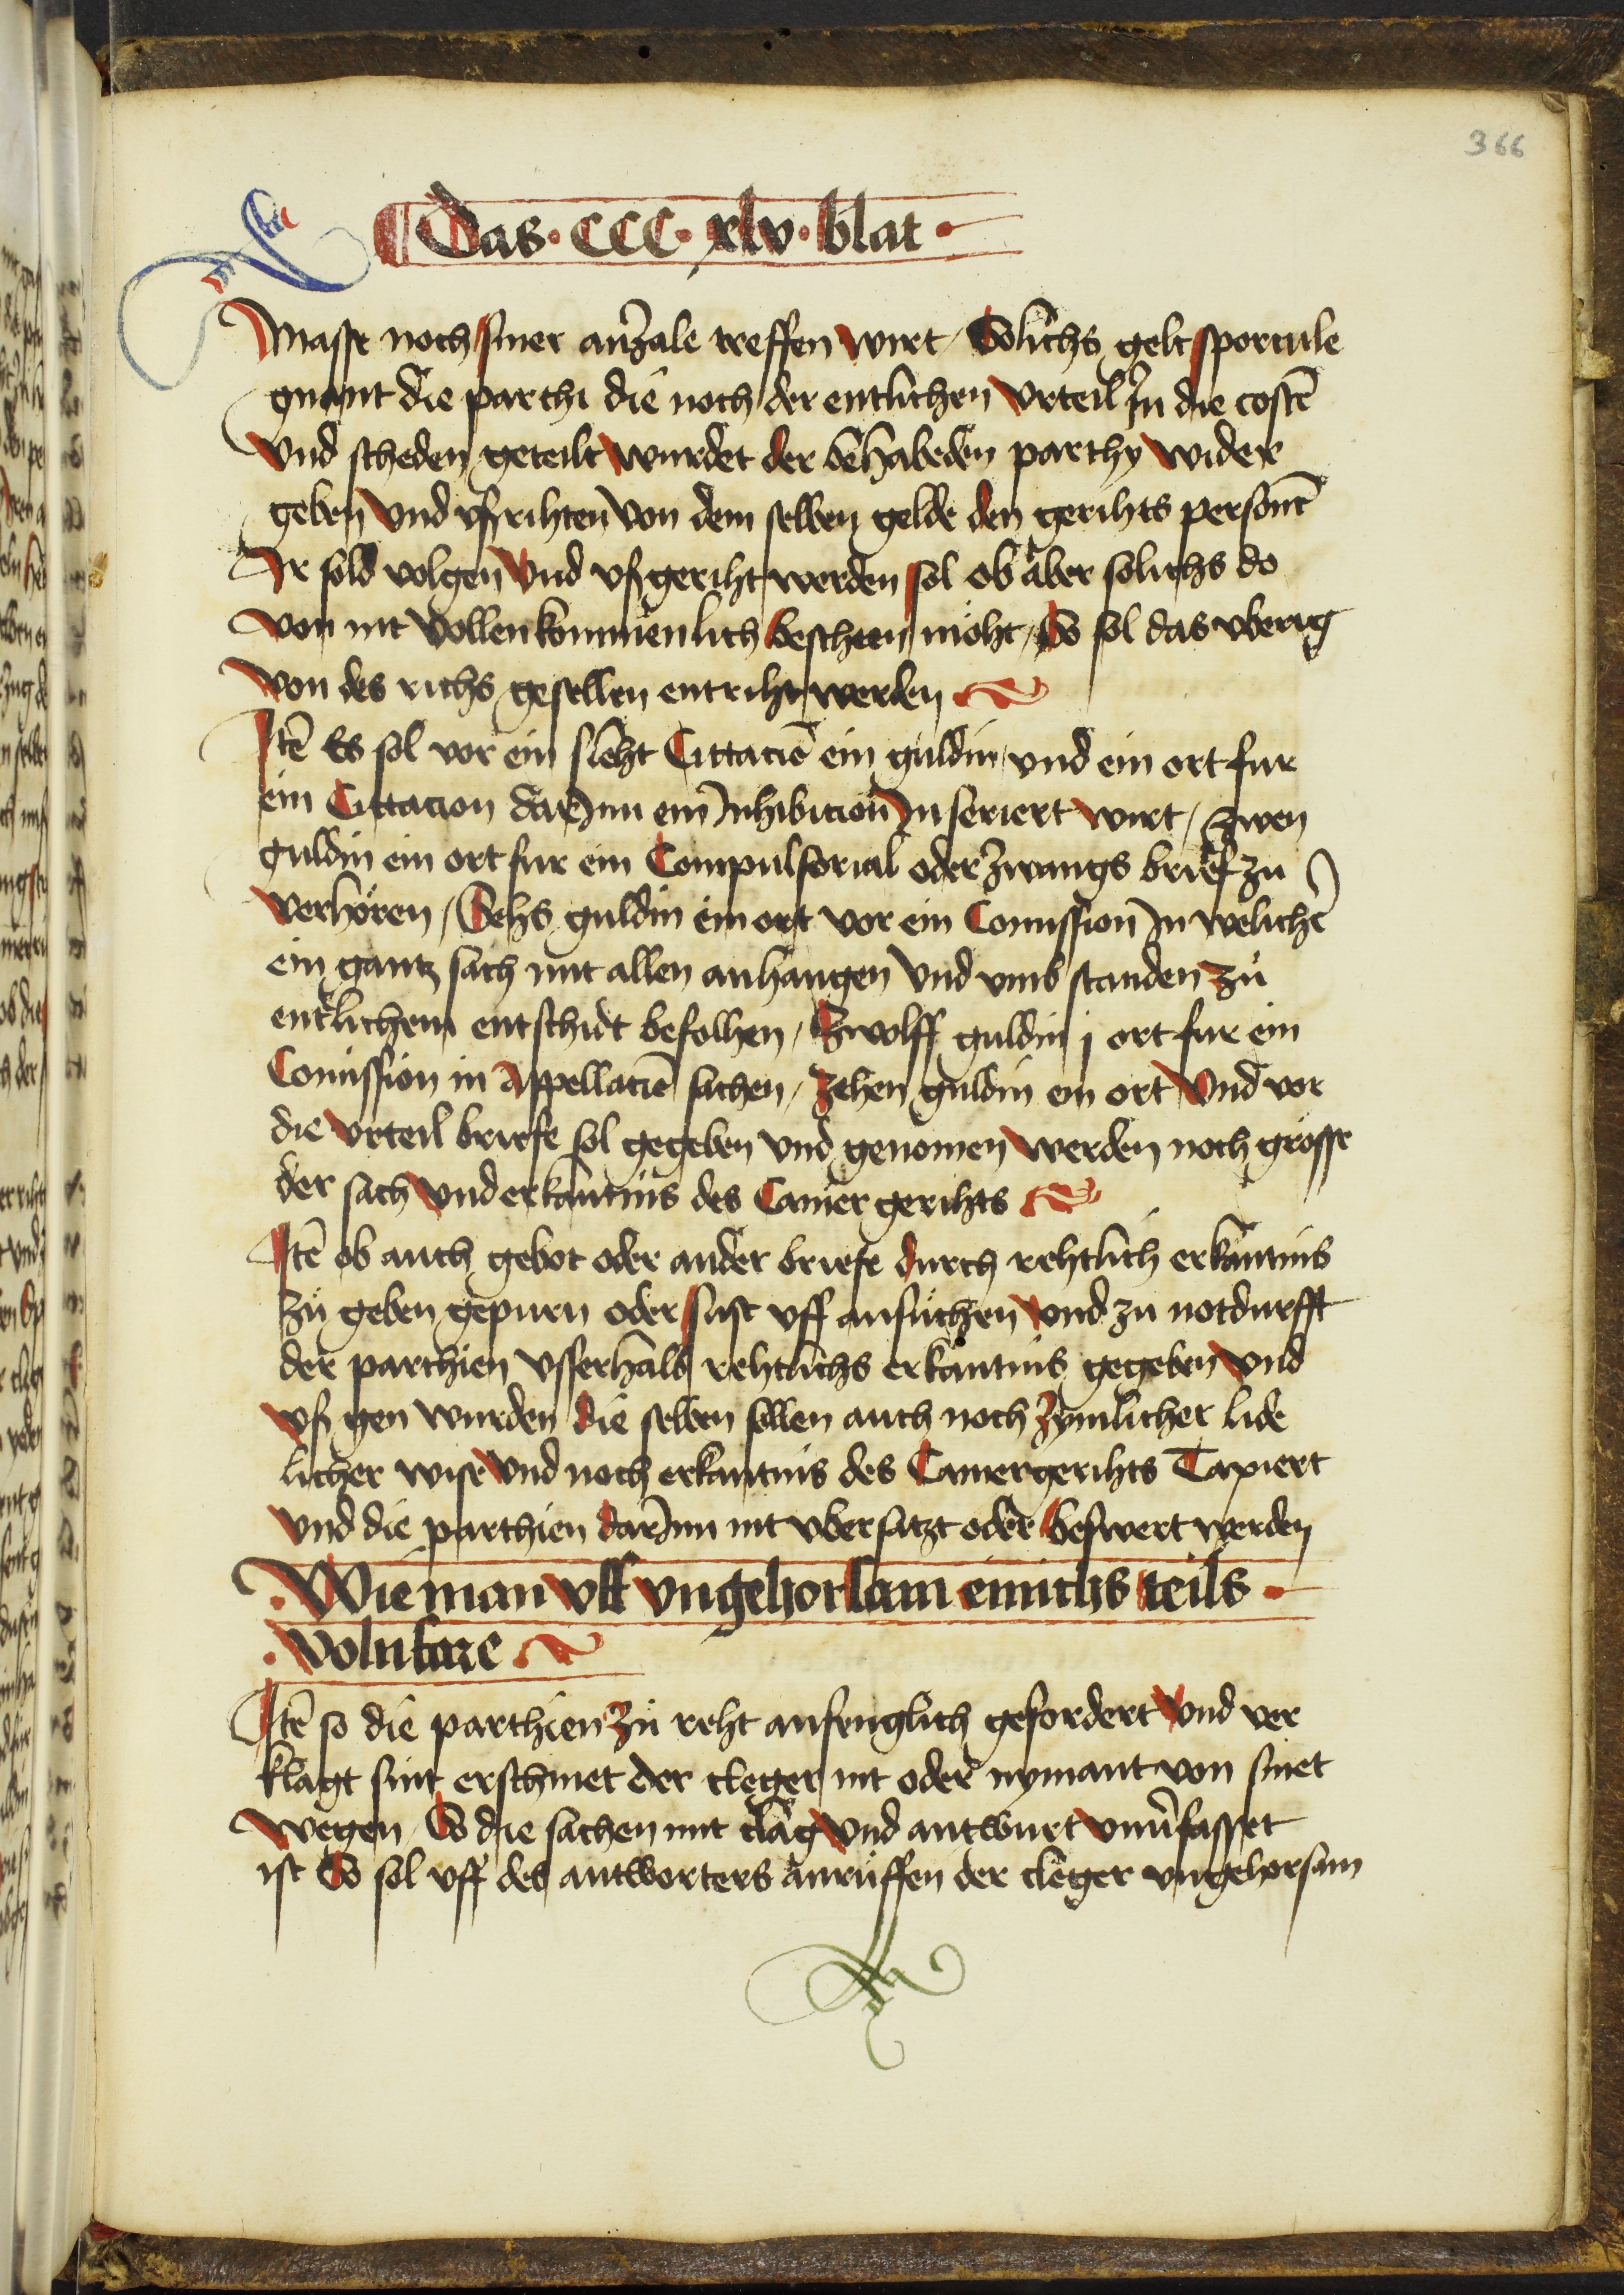 366
Das · CCC · xlv · blat ·
masse noch siner anzale treffen wirt / Solichs gelt sporcule
gnant die parthi die noch der entlichen vrteil Jn die costē
vnd scheden geteilt wurdet der behabeden parthy wider
geben vnd vßrihten von dem selben gelde den gerihts personē
Jr sold volgen vnd vßgeriht werden sol ob aber solichs do
von nit vollenkommenlich bescheen möht / So sol das vberig
von des richs gesellen entriht werden
Jtē Es sol vor ein sleht Cittaciō ein guldin vnd ein ort fur
ein Cittacion darJnn ein Jnhibicion Jnseriert wirt / zwen
guldin ein ort fur ein Compulsorial oder zwangs brief zu
verhören / Sehs guldin ein ort vor ein Comission Jn welichē
ein gantz sach mit allen anhangen vnd vmb standen zů
entlichem entschidt befolhen / Zwolff guldin j ort fur ein
Comission in Appellaciō sachen / Zehen guldin ein ort vnd vor
die vrteil briefe sol gegeben vnd genomen werden noch grösse
der sach vnd erkantnis des Camergerihts
Jtē ob auch gebot oder ander briefe durch rehtlich erkantnis
zů geben gepurn oder sust vff ansůchen vnd zu notdurfft
der parthien vsserhalb rehtlichs erkantnis gegeben vnd
vß gen wurden die selben sollen auch noch zymlicher lide
licher wise vnd noch erkantnis des Camergerihts Taxiert
vnd die parthien darJnn nit vbersatzt oder beswert werden
· Wie man vff vngehorsam einichs teils ·
· volnfare
Jtē so die parthien zů reht anfenglich gefordert vnd ver
klagt sint erschinet der cleger nit oder nymant von sinet
wegen / So die sachen mit clag vnd antwurt vnūfasset
ist So sol vff des antworters anrůffen der cleger vngehorsam